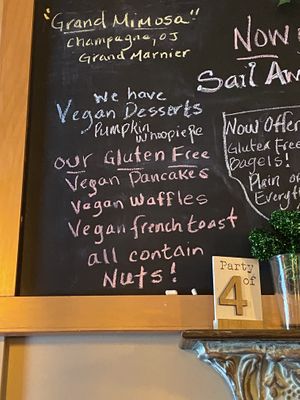 "Grand Mimosa"
Champagne, OJ
Grand Marnier
we have
Vegan Desserts
Pumpkin whoopiepie
our Gluten Free
Vegan Pancakes
Vegan Waffles
Vegan french toast
all contain
Nuts!
Now
Sail
Now Offer
Gluten Free
Bagels!
Plain or
Party
of
4